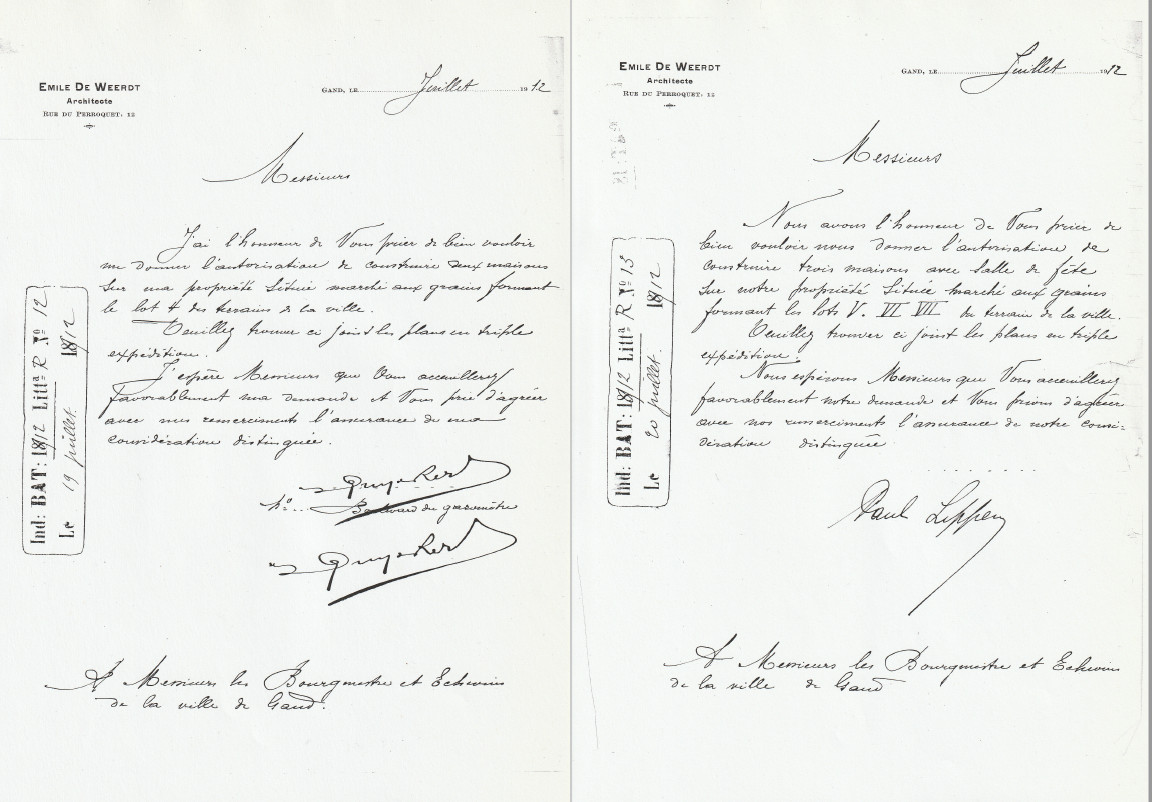 EMILE DE WEERDT
Architecte
RUE DU PERROQUET: 12
GAND, LE Juillet 1912
Messieurs
J'ai l'honneur de Vous prier de bien vouloir
me donner l'autorisation de construire deux maisons
sur ma propriété située marché aux grains formant
le lot 4 des terrains de la ville.
Veuillez trouver ci joint les plans en triple
expédition.
J'espère Messieurs que Vous accueillerez
favorablement ma demande et Vous prie d'agréer
avec mes remerciments l'assurance de ma
considération distinguée.
Boulevard du gazomètre
A Messieurs les Bourgmestre et Echevins
de la ville de Gand.
Ind: BAT: 1912 Litta R No 12
Le 19 juillet 1912
EMILE DE WEERDT
Architecte
RUE DU PERROQUET: 12
GAND, LE Juillet 1912
Messieurs
Nous avons l'honneur de Vous prier de
bien vouloir nous donner l'autorisation de
construire trois maisons avec salle de fête
sur notre propriété située marché aux grains
formant les lots V. VI VII du terrain de la ville.
Veuillez trouver ci joint les plans en triple
expédition.
Nous espérons Messieurs que Vous accueillerez
favorablement notre demande et Vous prions d'agréer
avec nos remerciments l'assurance de notre consi-
dération distinguée
Paul Lippens
A Messieurs les Bourgmestre et Echevins
de la ville de Gand
Ind: BAT: 1912 Litta R No 13
Le 20 juillet 1912